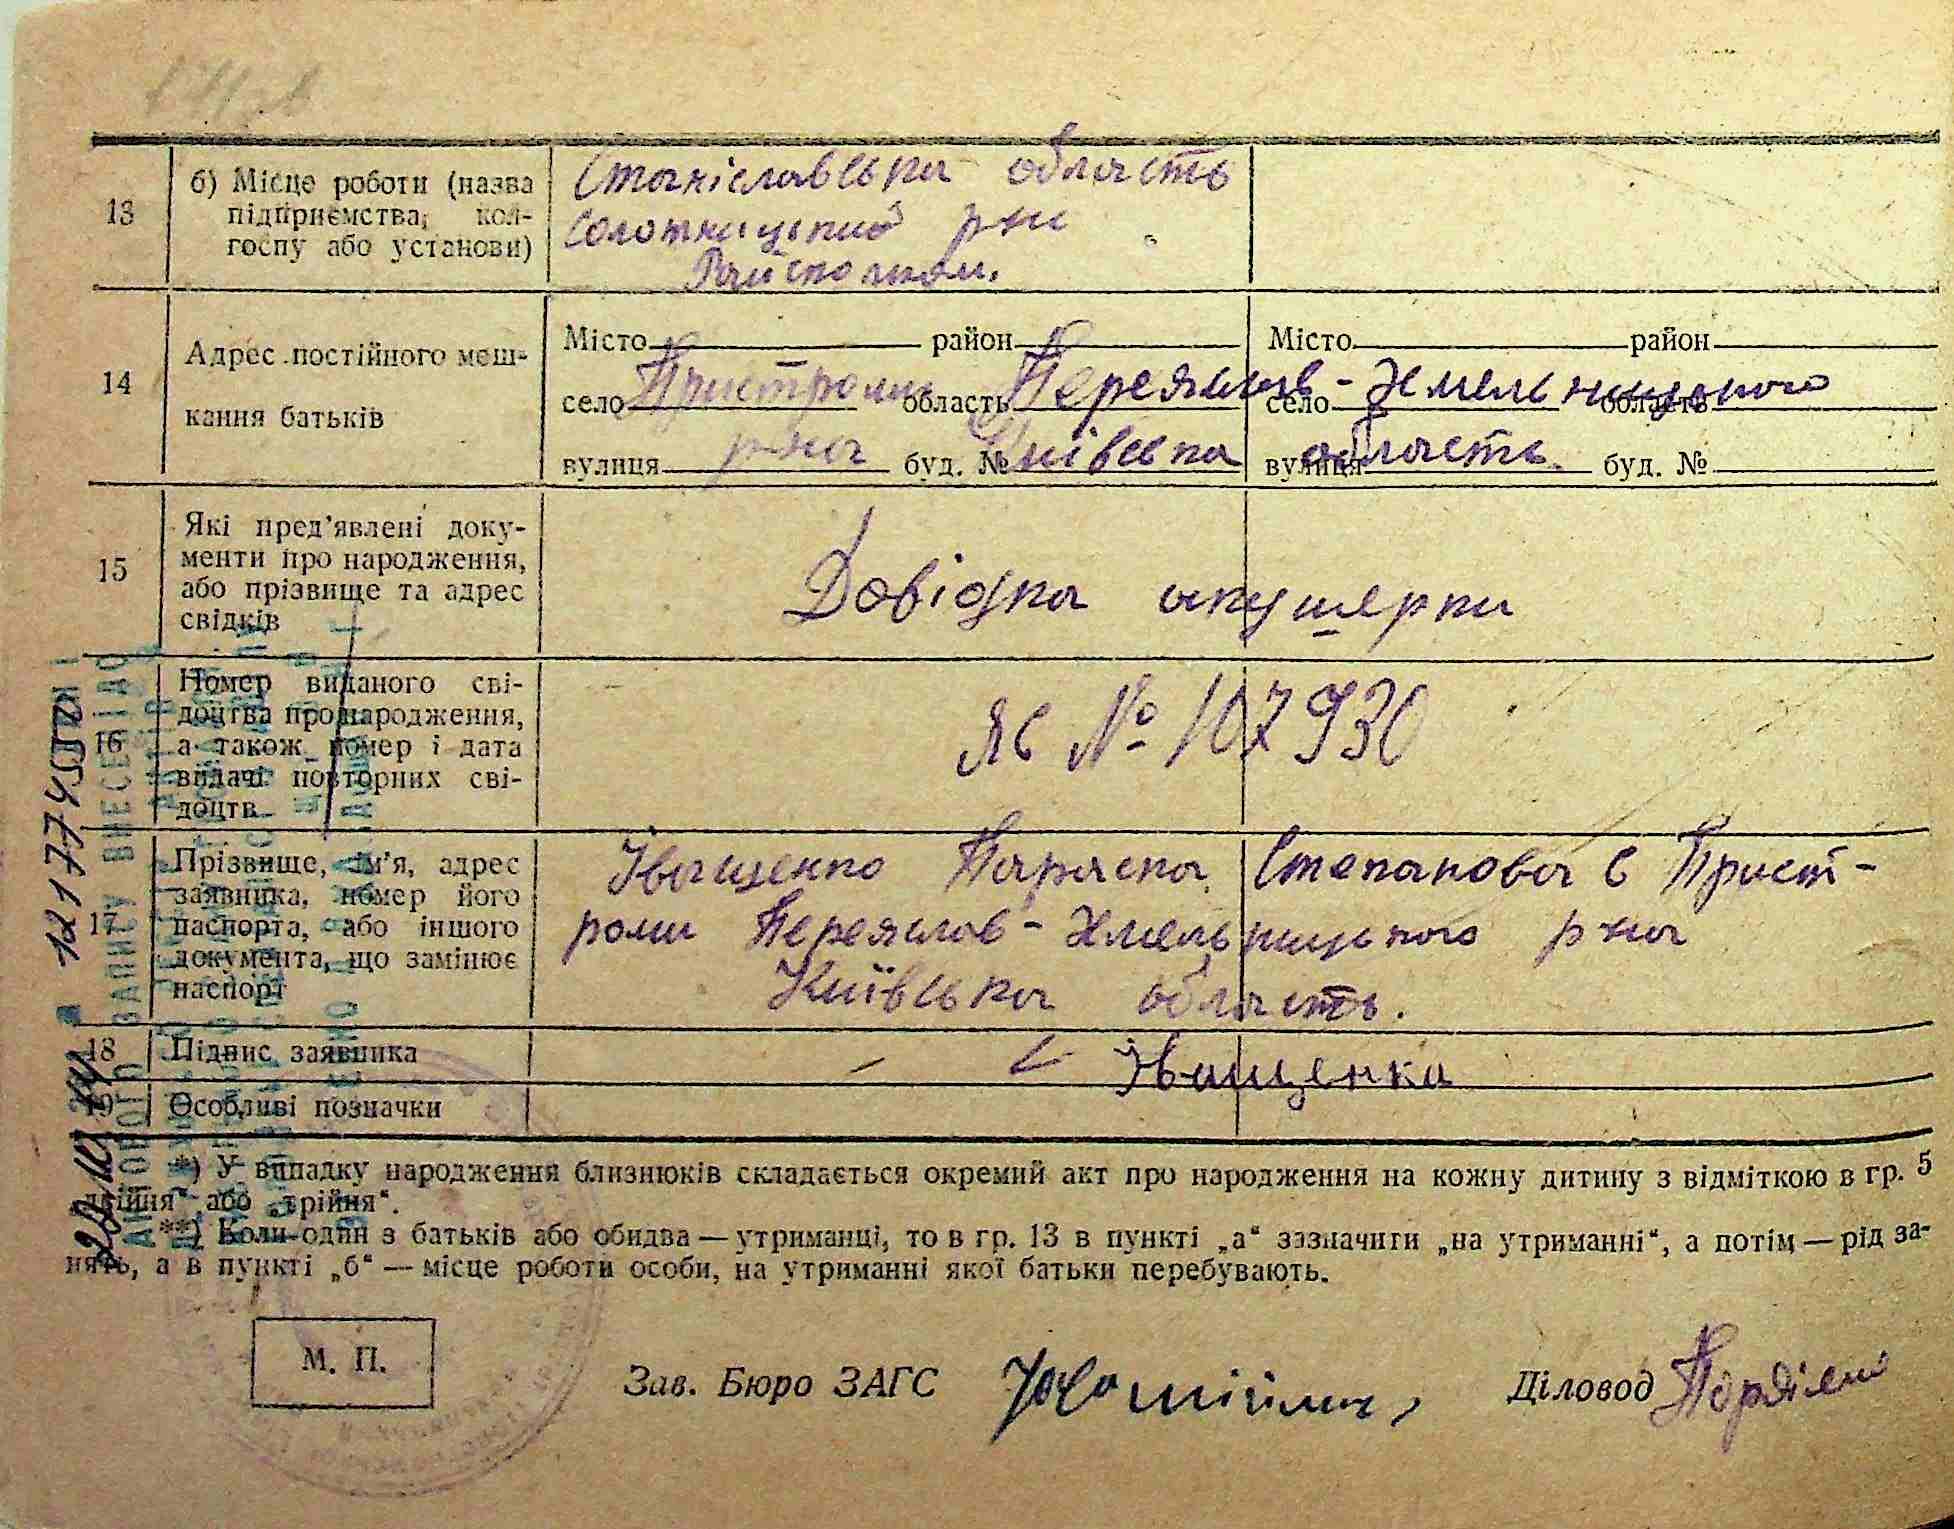 13
б) Місце роботи (назва
підприємства, кол-
госпу або установи)
Станіславська область
Солотвицький р-ни
Райсполком.
14
Адрес постійного меш-
кання батьків
Місто район Місто район
село Пристроми область Переяслав-Хмельницького село область
вулиця р-на буд. № Київська вулиця область. буд. №
15
Які пред'явлені доку-
менти про народження,
або прізвище та адрес
свідків
Довідка акушерки
16
Номер виданого сві-
доцтва про народження,
а також номер і дата
видачі повторних сві-
доцтв
ЯБ № 107930
17
Прізвище, ім'я, адрес
заявника, номер його
паспорта, або іншого
документа, що замінює
паспорт
Іващенко Параска Степанова с Прист-
роми Переяслав-Хмельницького р-на
Київська область.
18 Підпис заявника
Іващенка
19 Особливі позначки
*) У випадку народження близнюків складається окремий акт про народження на кожну дитину з відміткою в гр. 5
„двійня“ або „трійня“.
**) Коли один з батьків або обидва — утриманці, то в гр. 13 в пункті „а“ зазначити „на утриманні“, а потім — рід за-
нять, а в пункті „б“ — місце роботи особи, на утриманні якої батьки перебувають.
М. П.
Зав. Бюро ЗАГС
Діловод